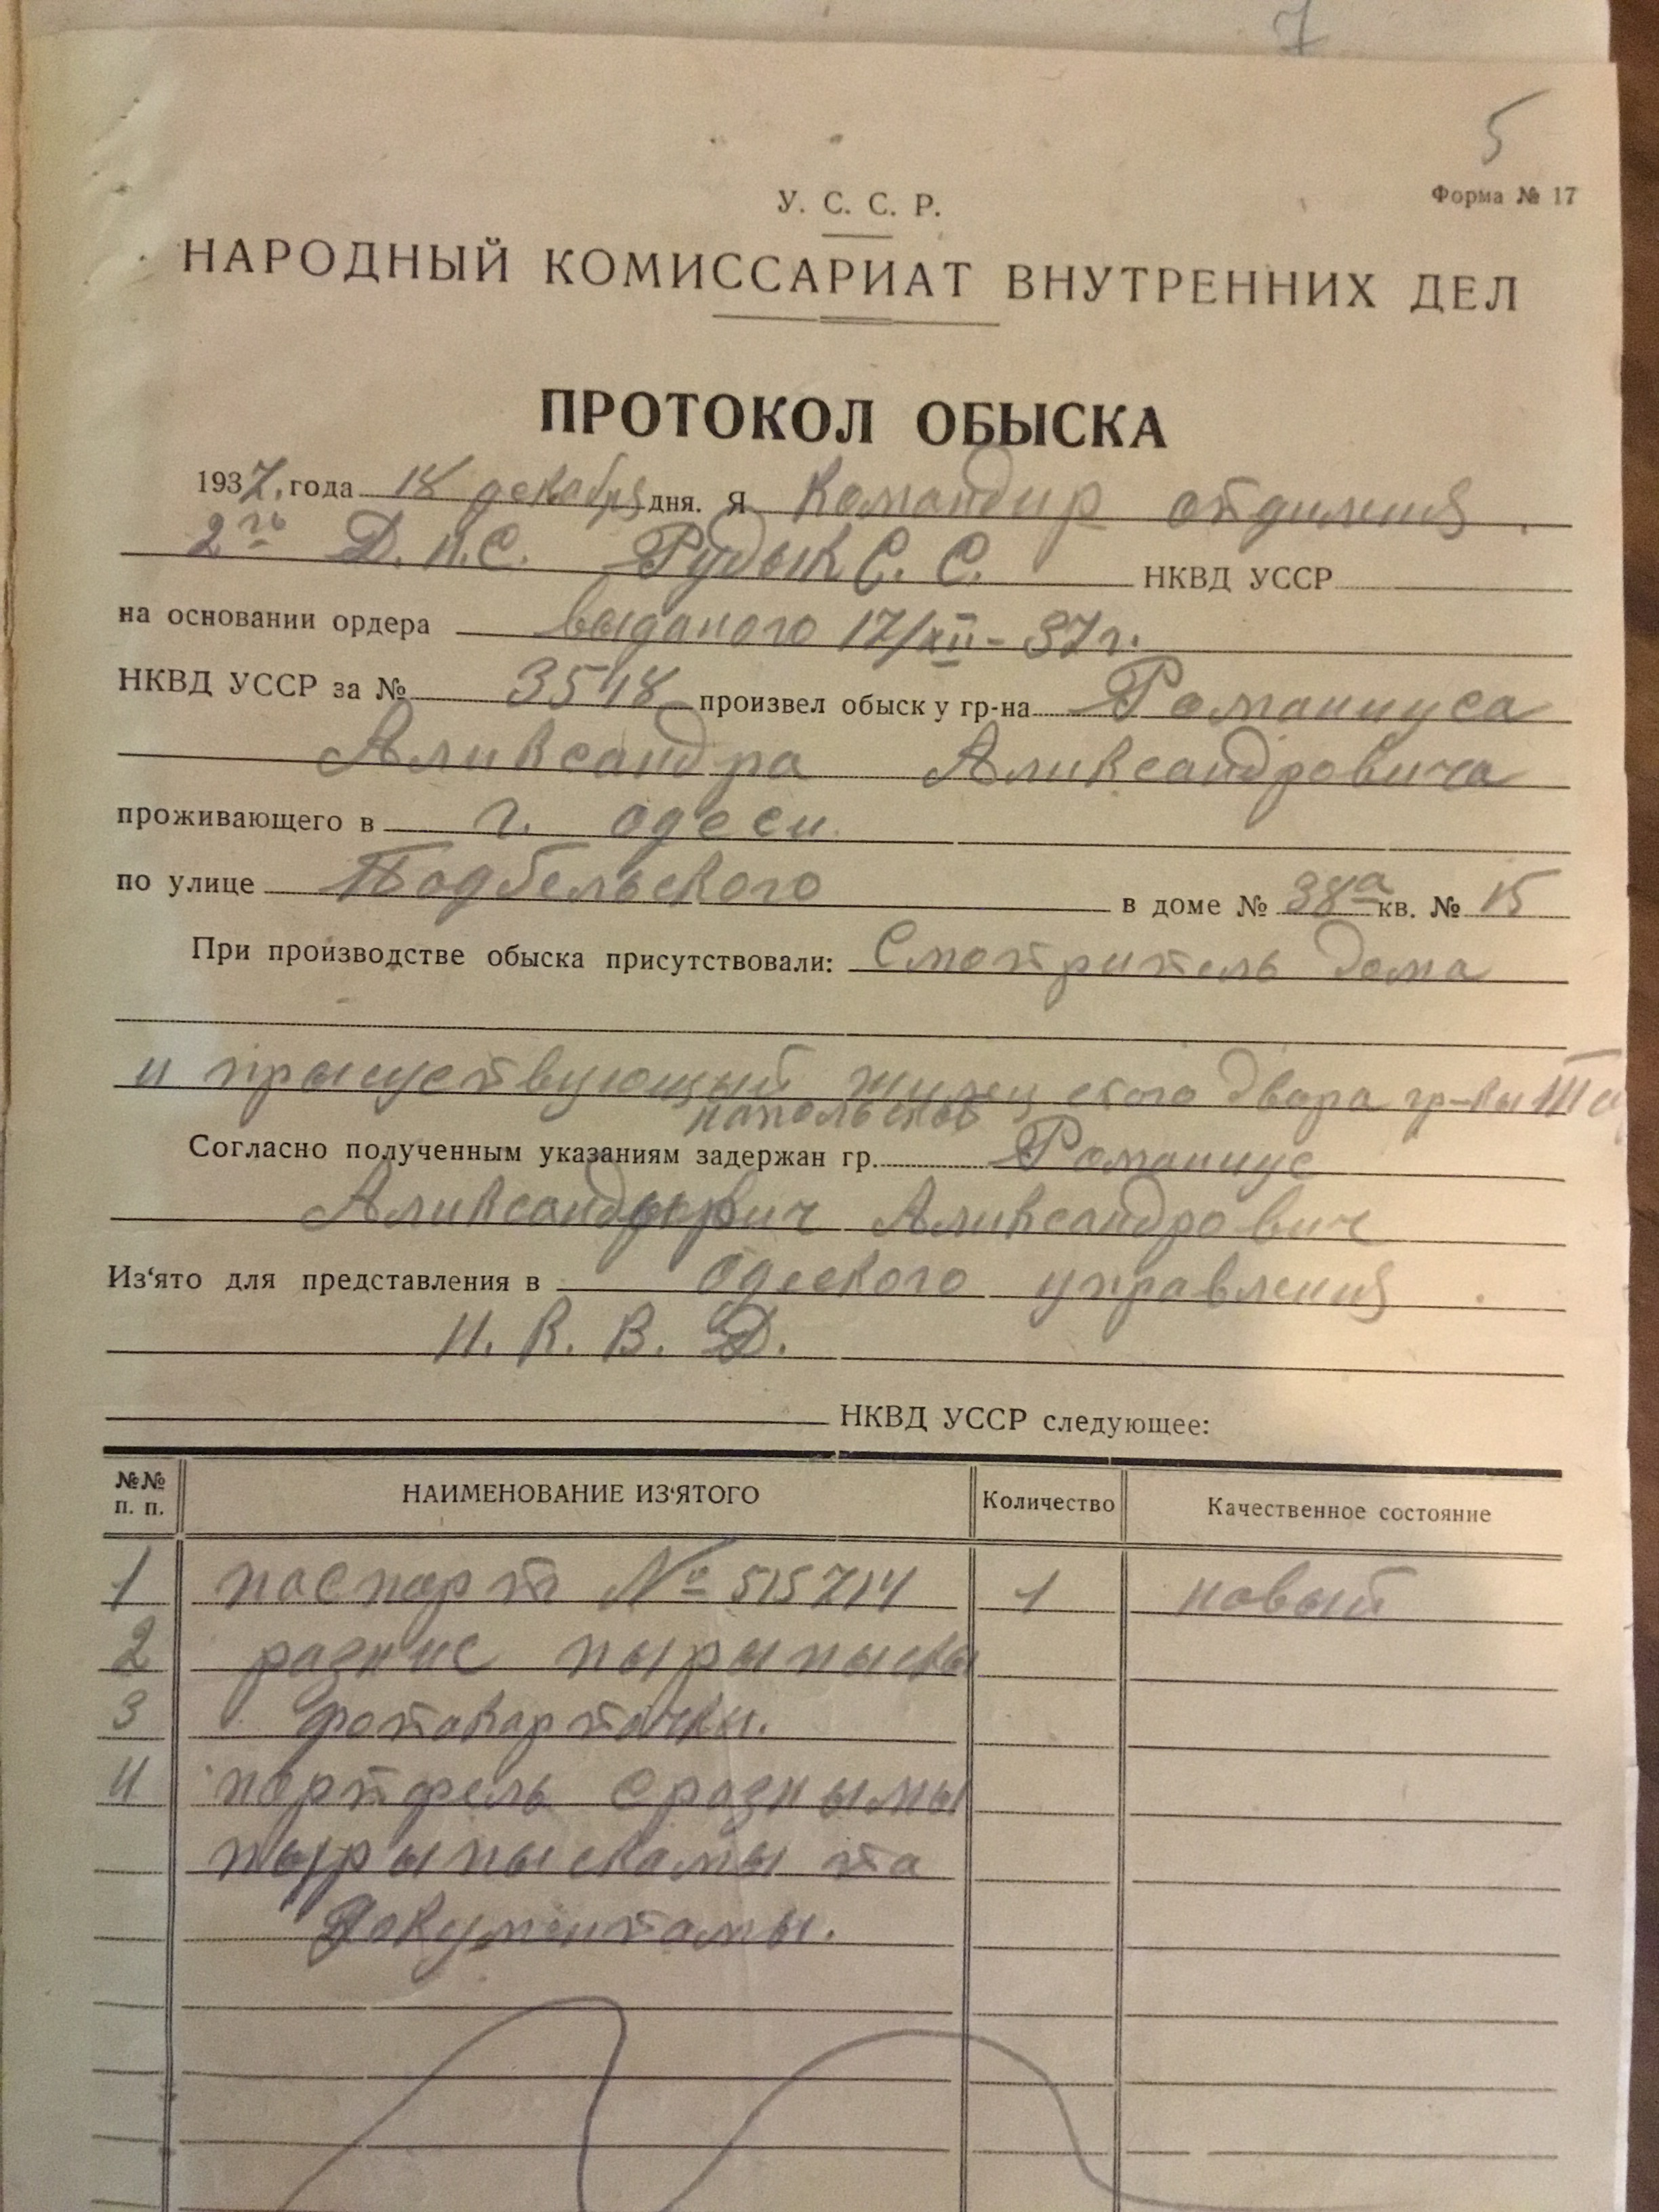 7
5
Форма № 17
У. С. С. Р.
НАРОДНЫЙ КОМИССАРИАТ ВНУТРЕННИХ ДЕЛ
ПРОТОКОЛ ОБЫСКА
1937. года 18 декабря дня. Я командир отдиления
2го Д.П.С. Рудык С. С. НКВД УССР
на основании ордера выданого 17/XII - 37 г.
НКВД УССР за № произвел обыск у гр-на Романиуса
Аликсандра Аликсандровича
проживающего в г. одеси.
по улице Подбельского в доме № 38а кв. № 15
При производстве обыска присутствовали: Смотритель дома
и прысуствующый жилец етого двора гр-кы
Согласно полученным указаниям задержан гр. Романиус
Аликсандрович
Из‘ято для представления в одеского управления
Н. К. В. Д.
НКВД УССР следующее:
№№ п. п. НАИМЕНОВАНИЕ ИЗ‘ЯТОГО Количество Качественное состояние
1 паспорт № 515714 1 новый
2 разние пырыпыскы
3 фотокарточки.
4 портфель с разнымы
пырыпыскамы та
документамы.